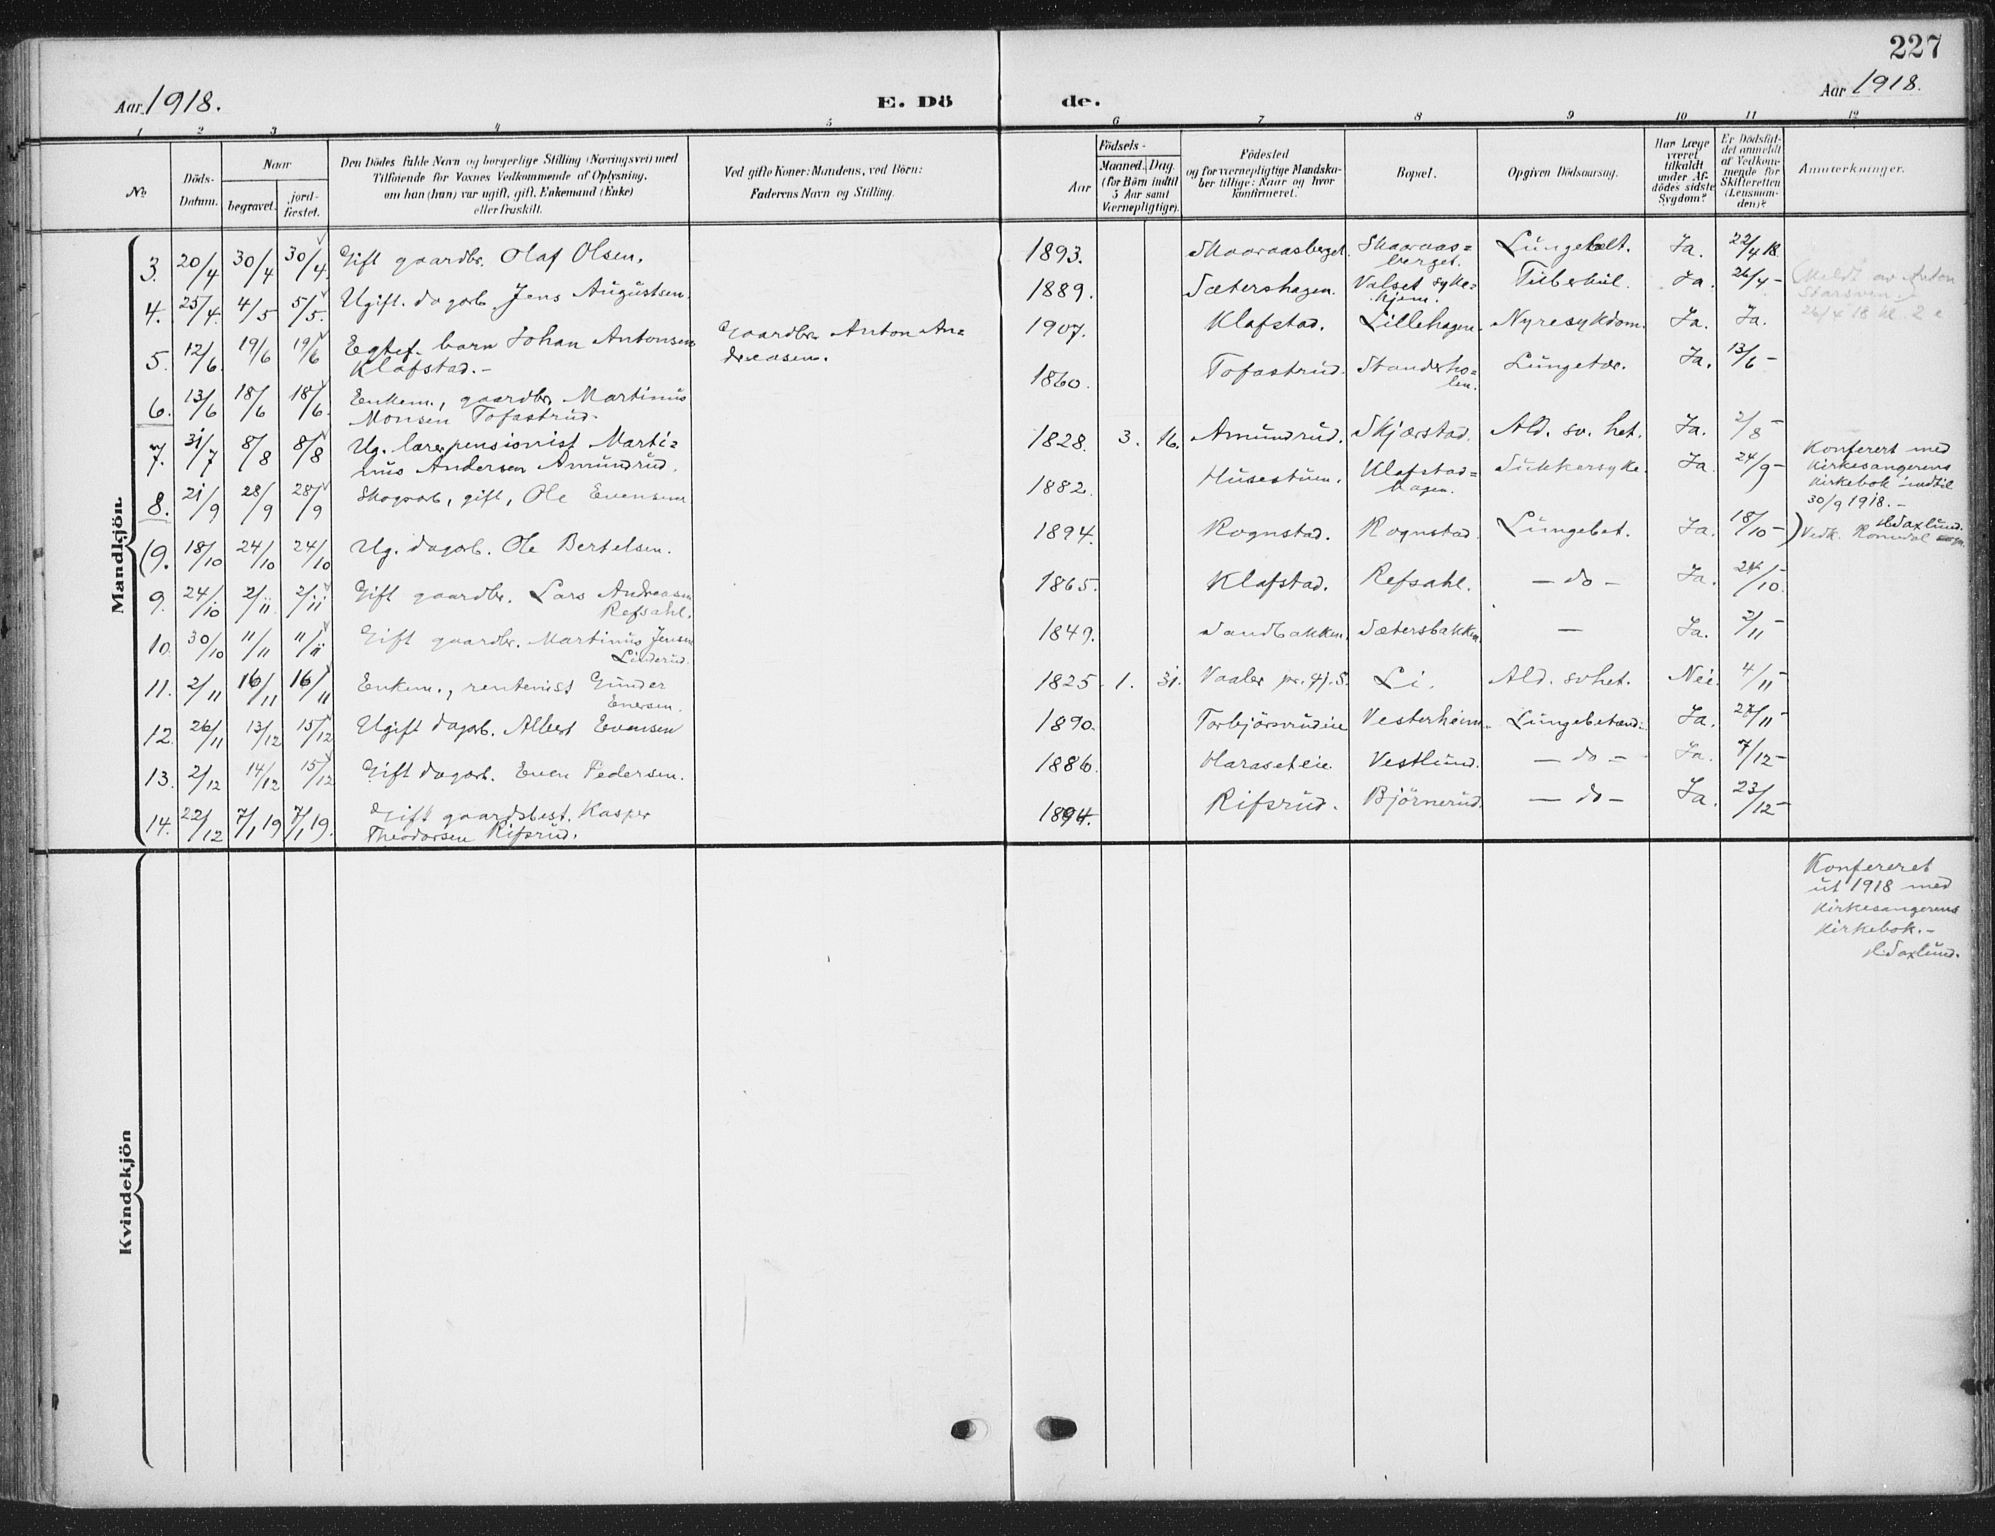 227
Aar 1918.
E. Dö de.
Aar 1918.
1 2 3 4 5 6 7 8 9 10 11 12
No.
Döds-Datum.
Naar
begravet.
jord-fæstet.
Den Dödes fulde Navn og borgerlige Stilling (Næringsvei) med
Tilföiende for Voxnes Vedkommende af Oplysning,
om han (hun) var ugift, gift, Enkemand (Enke)
eller fraskilt.
Ved gifte Koner: Mandens, ved Börn:
Faderens Navn og Stilling.
Födsels-
Aar
Maaned. Dag.
(for Börn indtil
5 Aar samt
Værnepligtige).
Födested
og for værnepligtige Mandska-
ber tillige: Naar og hvor
konfirmeret.
Bopæl.
Opgiven Dödsaarsag.
Har Læge
været
tilkaldt
under Af-
dödes sidste
Sygdom?
Er Dödsfal-
det anmeldt
af Vedkom-
mende for
Skifteretten
(Lensman-
den)?
Anmerkninger.
Mandkjön.
3. 20/4 30/4 30/4 Gift gaardbr. Olaf Olsen. 1893. Skaaraasberget. Skaaraas=
berget. Lungebet. Ja. 22/4 18.
4. 25/4. 4/5 5/5. Ugift. dagarb. Jens Augustsen. 1889. Sætershagen. Valset syke-
hjem. Tuberkul. Ja. 26/4 – (Meldt av Anton
26/4 18 kl. 2 e
5. 12/6. 19/6 19/6 Egtef. barn Johan Antonsen
Klafstad. – Gaardbr. Anton An=
dreasen. 1907. Klafstad. Lillehagen. Nyresykdom. Ja. Ja.
6. 13/6 18/6 18/6. Enkem., gaardbr. Martinus
Monsen Tofastrud. 1860. Tofastrud. Standerho=
len. Lungetær. Ja. 13/6 –
7. 31/7 8/8 8/8 Ug. lærerpensionist Marti=
nus Andersen Amundrud. 1828. 3. 16. Amundrud. Skjærstad. Ald. sv. het. Ja. 2/8 –
8. 21/9 28/9 28/9 Skogarb., gift, Ole Evensen 1882. Husestuen. Klafstad=
hagen. Sukkersyke. Ja. 24/9 –
Konferert med
kirkesangerens
kirkebok indtil
30/9 1918. –
H Saxlund.
(9. 18/10 24/10 24/10 Ug. dagarb. Ole Bertelsen. 1894. Rognstad. Rognstad. Lungebet. Ja. 18/10 – ) Vedk. Romedal sogn.
9. 24/10 2/11. 2/11 Gift gaardbr. Lars Andreasen
Refsahl. 1865. Klafstad. Refsahl. – do – Ja. 24/10. –
10. 30/10 11/11 11/11 Gift gaardbr. Martinus Jensen
Linderud. 1849. Sandbakken. Sætersbakken. — Ja. 2/11 –
11. 2/11 16/11 16/11 Enkem., rentenist Gunder
Enersen. 1825. 1. 31. Vaaler pr. gj. S. Li. Ald. svhet. Nei. 4/11 –
12. 26/11 13/12 15/12 Ugift dagarb. Albert Evensen 1890. Torbjörnrudeie Vesterheim. Lungebetænd. Ja. 27/11 –
13. 2/12 14/12 15/12 Gift dagarb. Even Pedersen. 1886. Haraseteie Vestlund. – do – Ja. 7/12 –
14. 22/12 7/1 19 7/1 19. Gift gaardsbest. Kasper
Theodorsen Rifsrud. 1894. Rifsrud. Björnerud. – do – Ja. 23/12 –
Kvindekjön
Konfereret
ut 1918 med
kirkesangerens
kirkebok. –
H Saxlund.